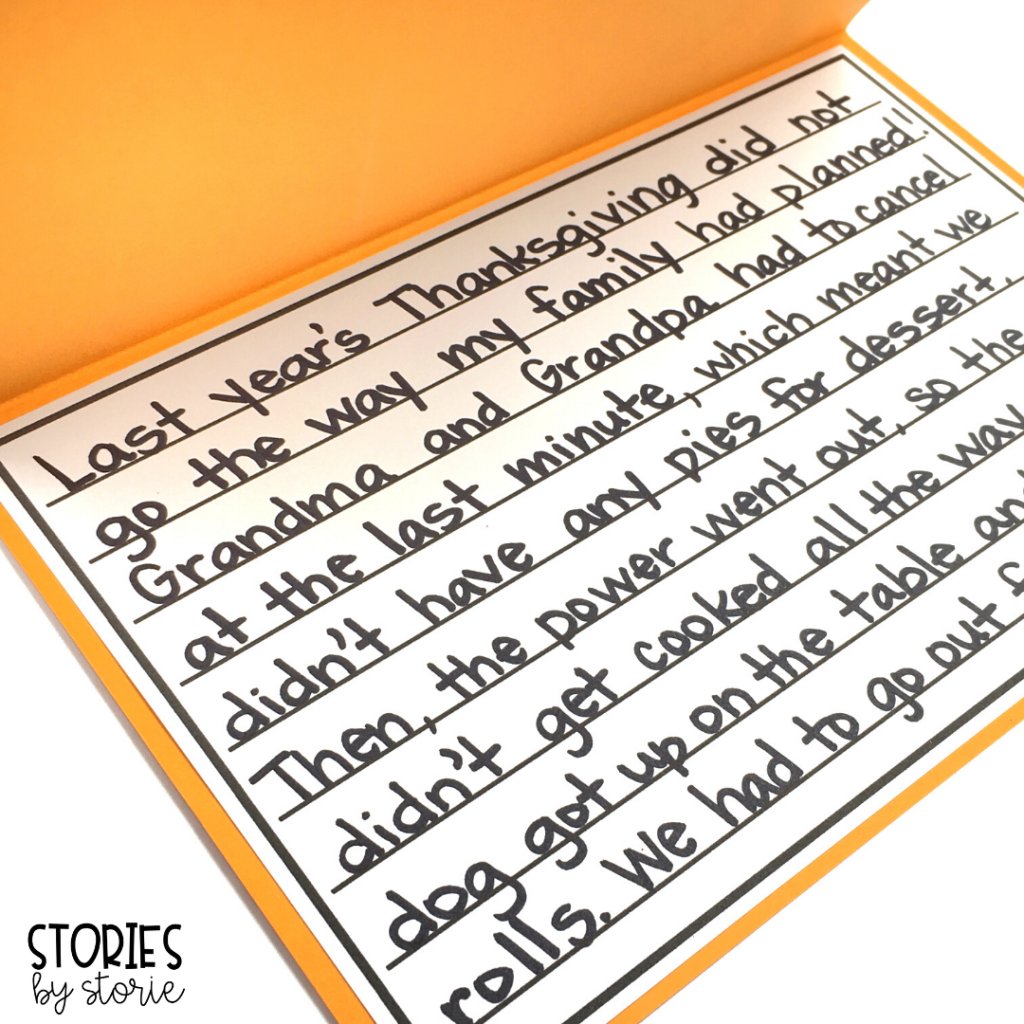 Last year's Thanksgiving did not
go the way my family had planned!
Grandma and Grandpa had to cancel
at the last minute, which meant we
didn't have any pies for dessert.
Then, the power went out, so the
didn't get cooked all the way
dog got up on the table and
rolls. We had to go out f
STORIES
by storie